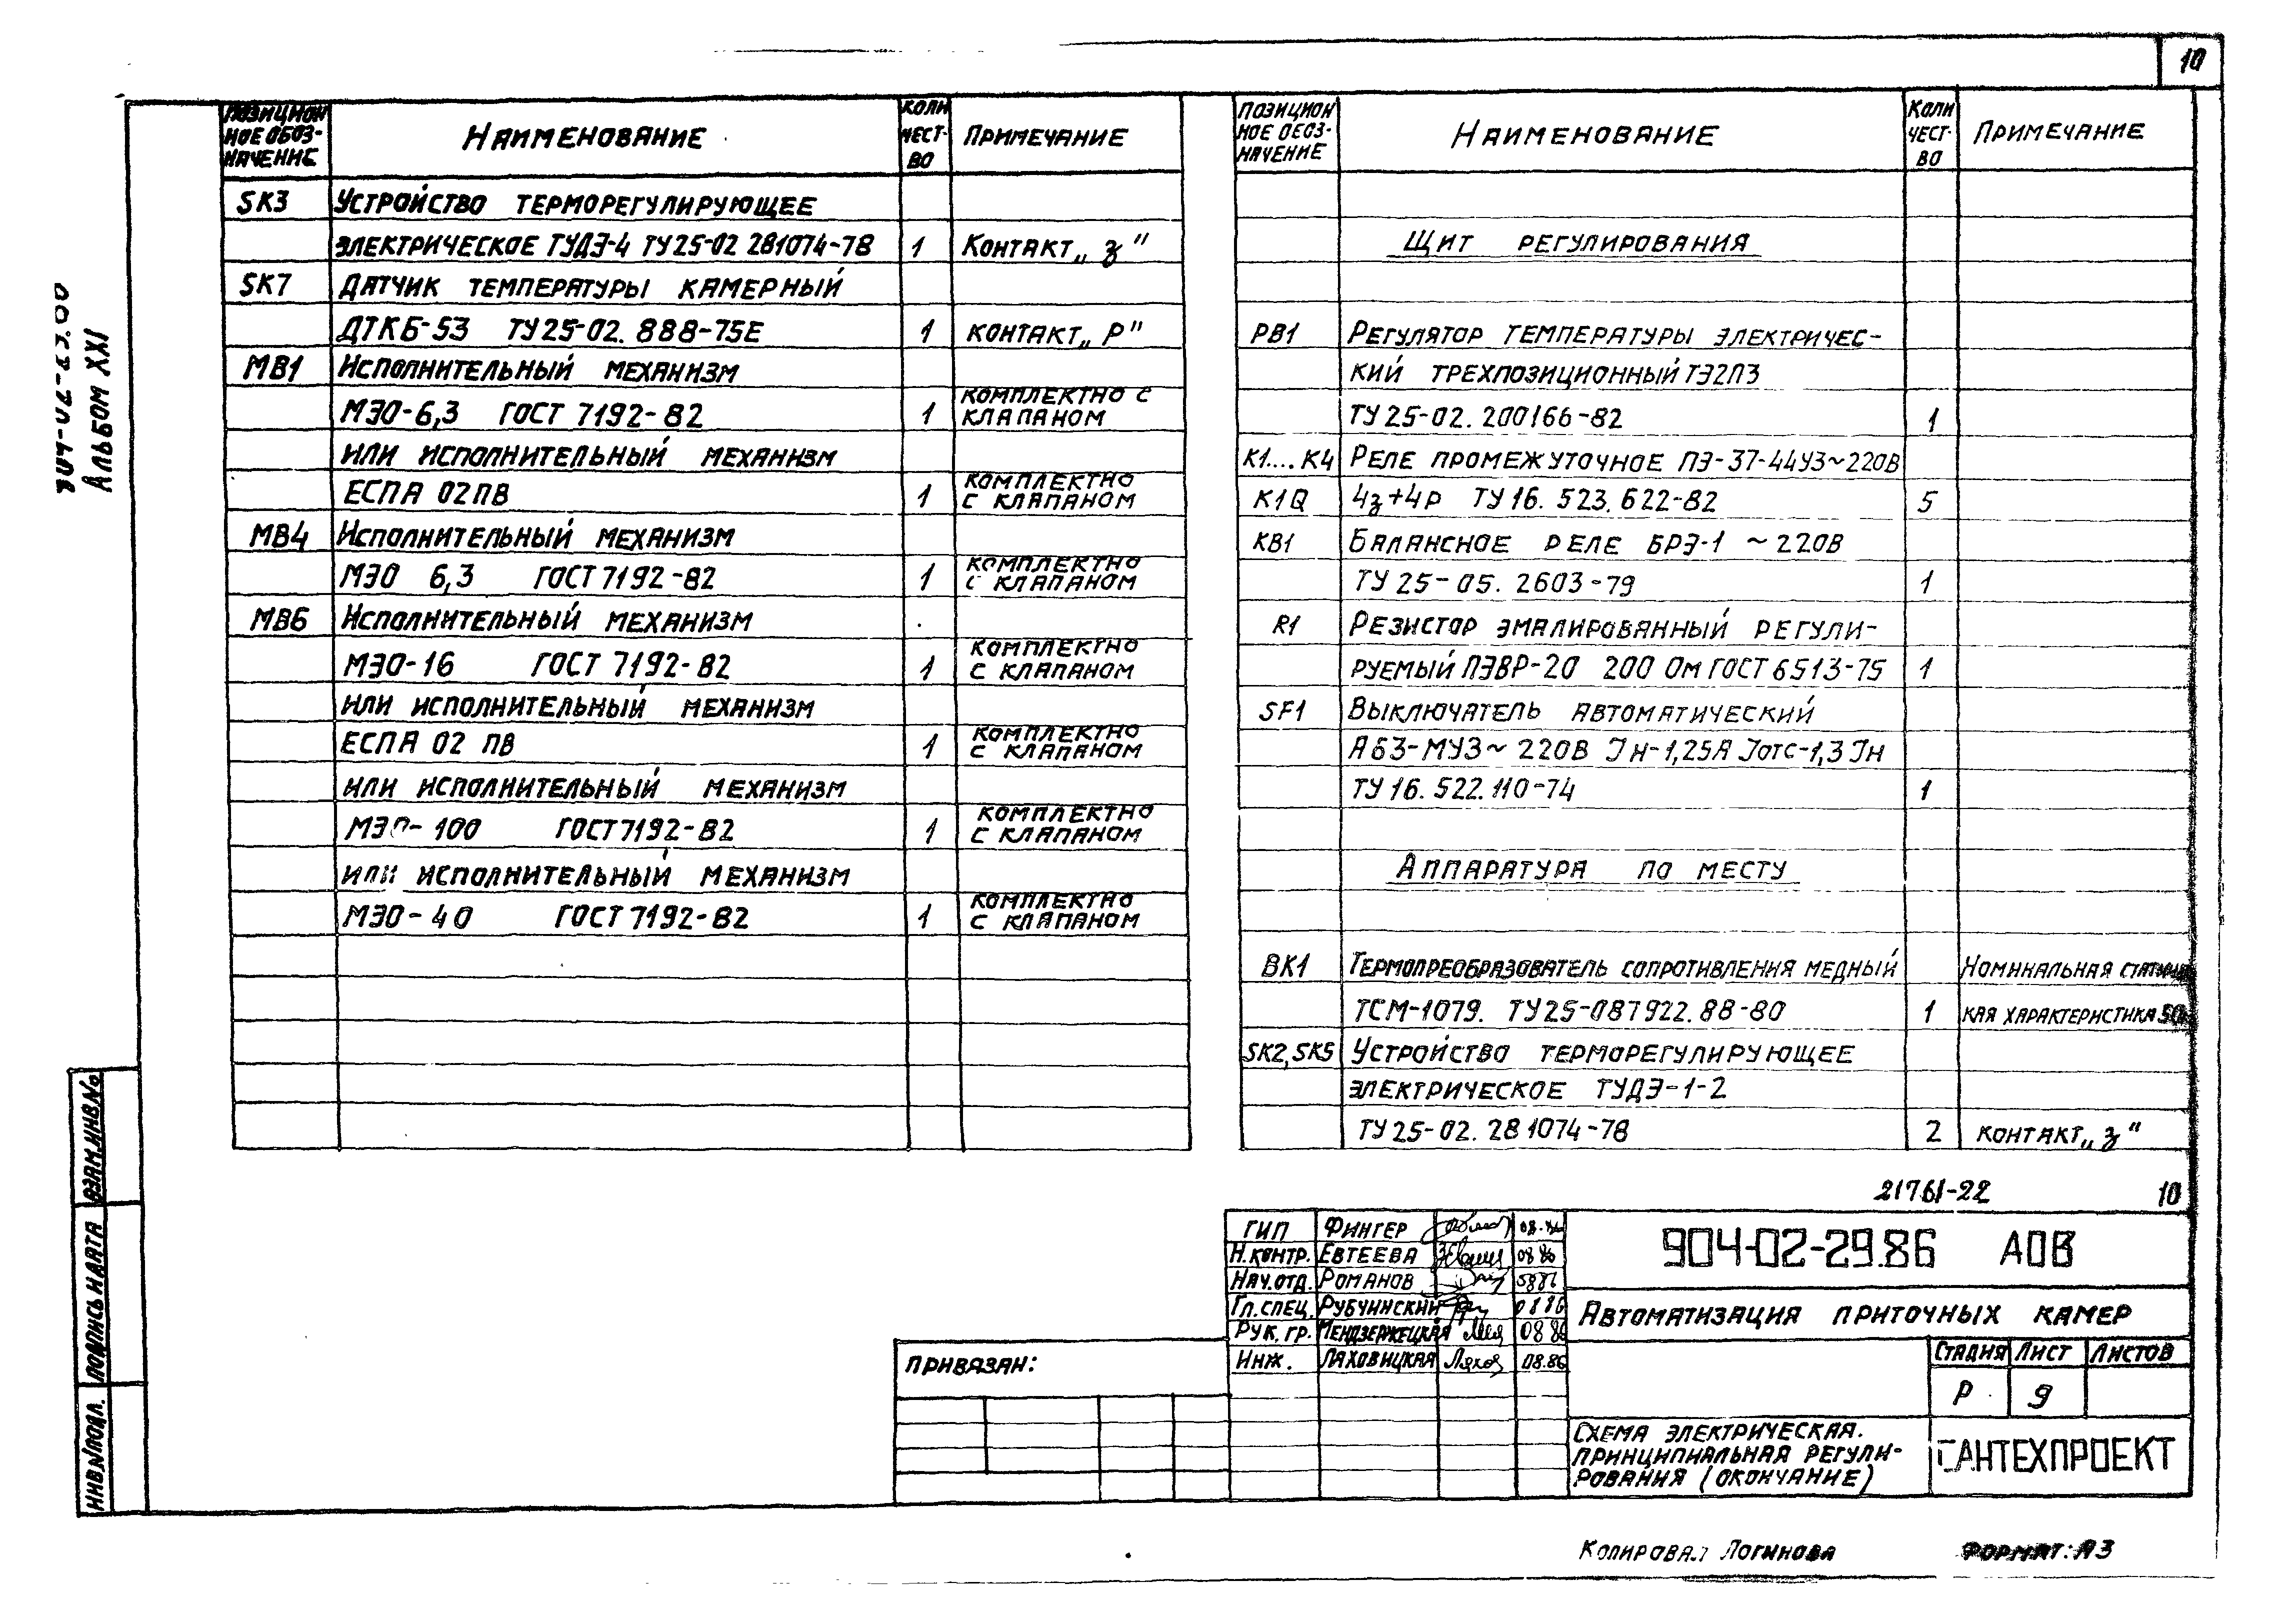 10
904-02-29.86
Альбом XXI
Позицион
ное обоз-
начение
Наименование
Коли
чест-
во
Примечание
SK3 Устройство терморегулирующее
электрическое ТУДЭ-4 ТУ25-02 281074-78 1 Контакт „з"
SK7 Датчик температуры камерный
ДТКБ-53 ТУ25-02. 888-75Е 1 контакт „Р"
МВ1 Исполнительный механизм
МЭО-6,3 ГОСТ 7192-82 1 комплектно с клапаном
или исполнительный механизм
ЕСПА 02ПВ 1 комплектно с клапаном
МВ4 Исполнительный механизм
МЭО 6,3 ГОСТ 7192-82 1 комплектно с клапаном
МВ6 Исполнительный механизм
МЭО-16 ГОСТ 7192-82 1 комплектно с клапаном
или исполнительный механизм
ЕСПА 02 ПВ 1 комплектно с клапаном
или исполнительный механизм
МЭО-100 ГОСТ 7192-82 1 комплектно с клапаном
или исполнительный механизм
МЭО-40 ГОСТ 7192-82 1 комплектно с клапаном
Позицион
ное обоз-
начение
Наименование
Коли
чест-
во
Примечание
Щит регулирования
РВ1 Регулятор температуры электричес-
кий трехпозиционный ТЭ2П3
ТУ 25-02. 200166-82 1
К1....К4 Реле промежуточное ПЭ-37-44У3~220В
К1Q 4з+4р ТУ 16. 523. 622-82 5
КВ1 Балансное реле БРЭ-1 ~220В
ТУ 25-05. 2603-79 1
R1 Резистор эмалированный регули-
руемый ПЭВР-20 200 Ом ГОСТ 6513-75 1
SF1 Выключатель автоматический
А63-МУ3~ 220В Iн-1,25А Iотс-1,3 Iн
ТУ 16. 522. 110-74 1
Аппаратура по месту
ВК1 Термопреобразователь сопротивления медный Номинальная статичес
ТСМ-1079. ТУ25-087922. 88-80 1 кая характеристика 50
SK2, SK5 Устройство терморегулирующее
электрическое ТУДЭ-1-2
ТУ 25-02. 281074-78 2 контакт „з"
21761-22 10
ГИП Фингер 08.86
Н.контр. Евтеева 08 86
Нач.отд. Романов
Гл.спец. Рубчинский 08 86
Рук. гр. Мендзержецкая 08 86
Инж. Ляховицкая 08.86
904-02-29.86 АОВ
Автоматизация приточных камер
Стадия Лист Листов
Р 9
Схема электрическая.
принципиальная регули-
рования (окончание)
САНТЕХПРОЕКТ
Привязан:
Взам.инв.№
Подпись и дата
Инв.№подл.
Копировал Логинова
Формат: А3